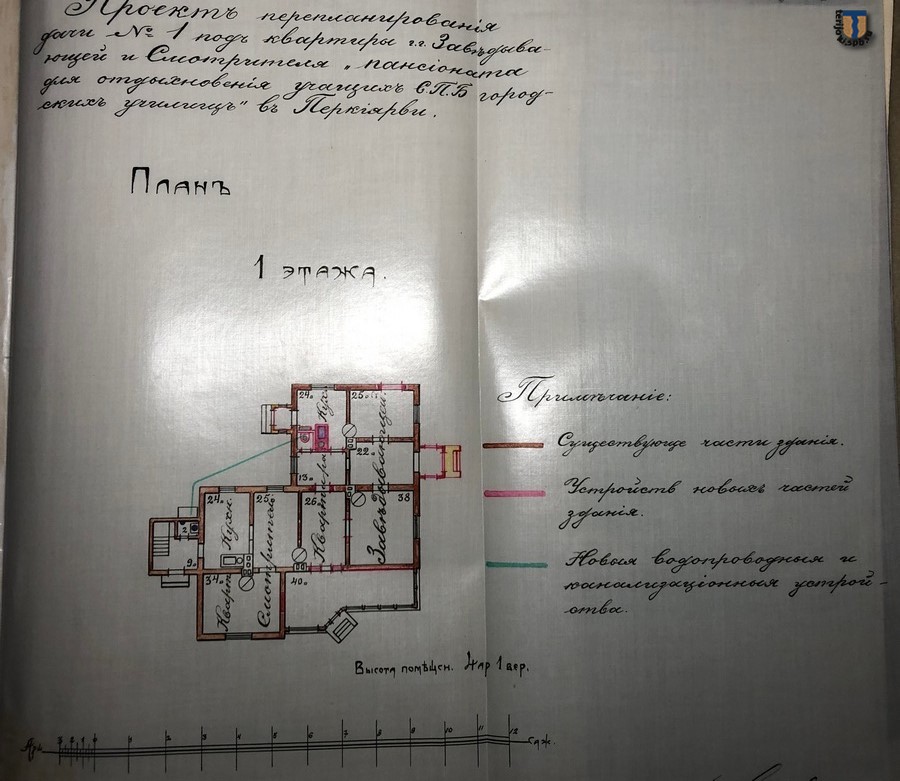 Проектъ перепланированія
дачи № 1 подъ квартиры г.г. Завѣдыва-
ющей и Смотрителя „пансіоната
для отдыхновенія учащихъ С.П.Б город-
скихъ училищъ" въ Перкіярви.
Планъ
1 этажа.
Примѣчаніе:
Существующе части зданія.
Устройств новыхъ частей
зданія.
Новыя водопроводныя и
канализаціонныя устрой-
ства.
24 Кух. 25
22
13
24 25 26 38
Кухн.
2
9
34 40
Кварт Смотрителя
Квартира Завѣдывающей.
Высота помѣщен. 4 ар 1 вер.
1 2 3 4 5 6 7 8 9 10 11 12 саж.